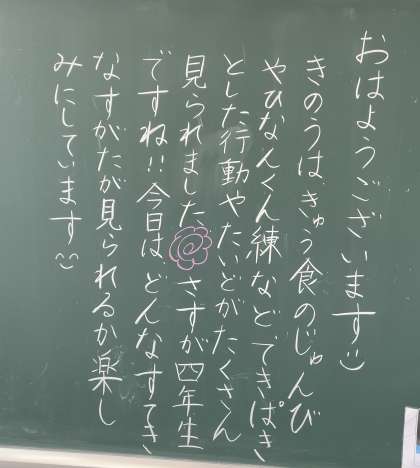 おはようございます
きのうはきゅう食のじゅんび
やひなんくん練などてきぱき
とした行動やたいどがたくさん
見られました さすが四年生
ですね!!今日はどんなすてき
なすがたが見られるか楽し
みにしています